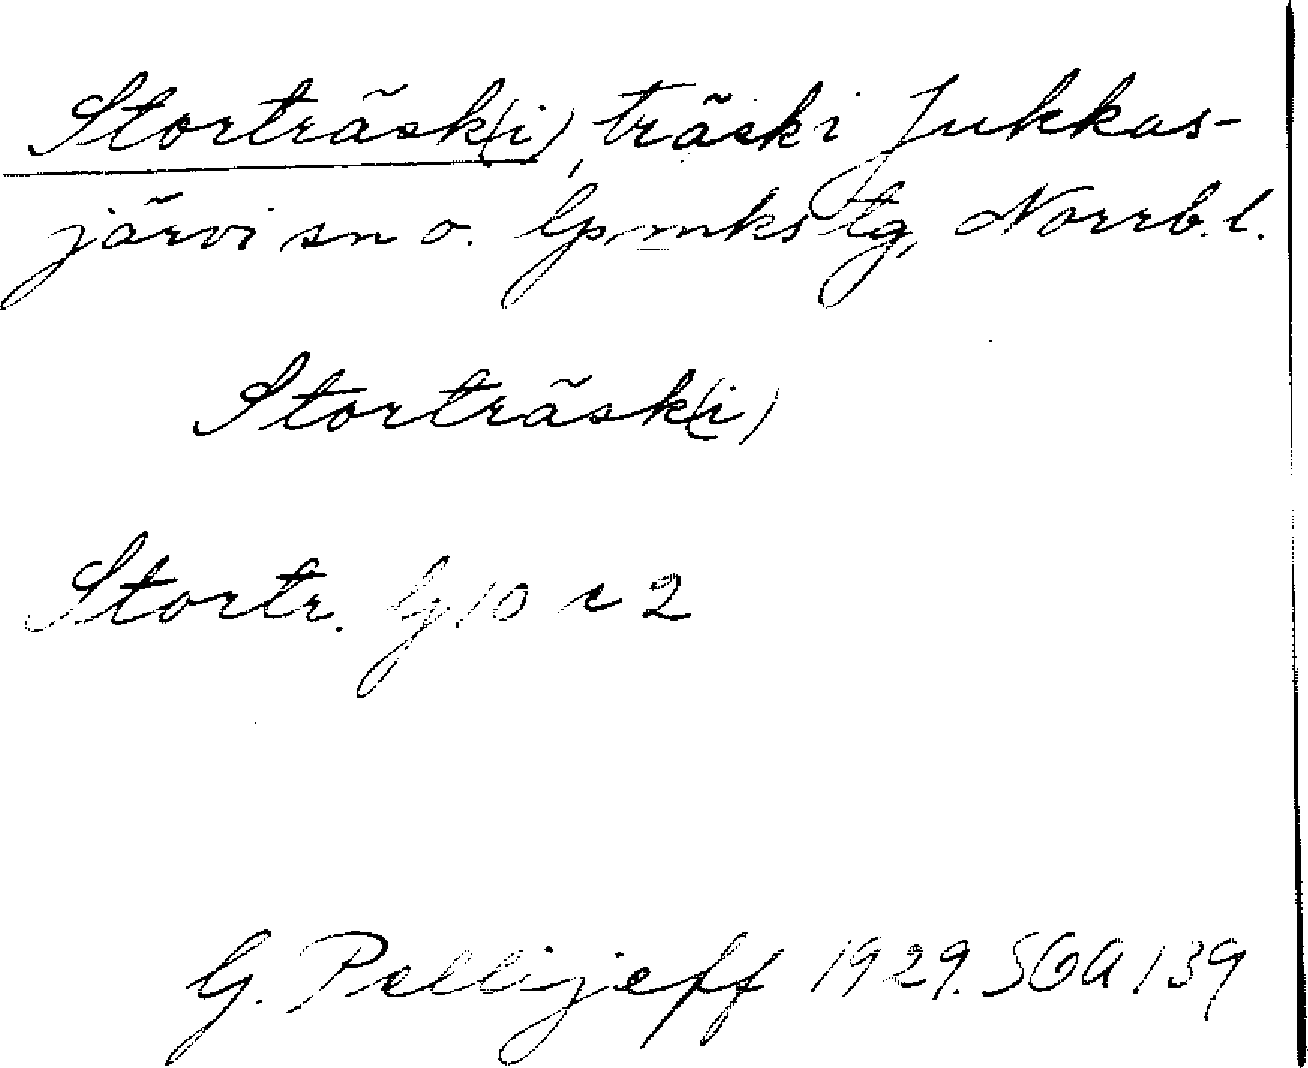 Storträsk(i), träsk i Jukkas-
järvi sn o. lpmkstg, Norrb. l.
Storträsk(i)
Stortr. G 10 c 2
G. Pellijeff 1929. SOA 139